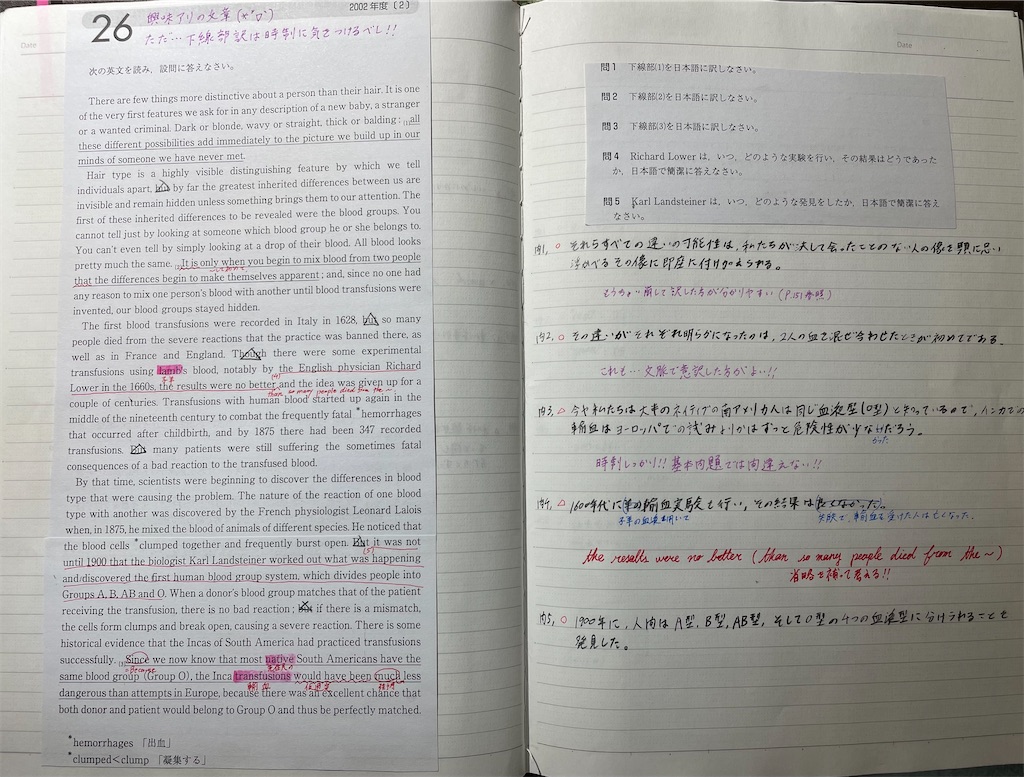 Date
26
2002年度〔2〕
興味アリの文章
ただ…下線部訳は時制に気をつけるべし!!
次の英文を読み，設問に答えなさい。
There are few things more distinctive about a person than their hair. It is one
of the very first features we ask for in any description of a new baby, a stranger
or a wanted criminal. Dark or blonde, wavy or straight, thick or balding: (1)all
these different possibilities add immediately to the picture we build up in our
minds of someone we have never met.
Hair type is a highly visible distinguishing feature by which we tell
individuals apart, but by far the greatest inherited differences between us are
invisible and remain hidden unless something brings them to our attention. The
first of these inherited differences to be revealed were the blood groups. You
cannot tell just by looking at someone which blood group he or she belongs to.
You can't even tell by simply looking at a drop of their blood. All blood looks
pretty much the same. (2)It is only when you begin to mix blood from two people
that the differences begin to make themselves apparent; and, since no one had
any reason to mix one person's blood with another until blood transfusions were
invented, our blood groups stayed hidden.
The first blood transfusions were recorded in Italy in 1628, but so many
people died from the severe reactions that the practice was banned there, as
well as in France and England. Though there were some experimental
transfusions using lamb's blood, notably by the English physician Richard
羊
(4)
Lower in the 1660s, the results were no better and the idea was given up for a
than so many people died from the ~
couple of centuries. Transfusions with human blood started up again in the
middle of the nineteenth century to combat the frequently fatal *hemorrhages
that occurred after childbirth, and by 1875 there had been 347 recorded
transfusions. But many patients were still suffering the sometimes fatal
consequences of a bad reaction to the transfused blood.
By that time, scientists were beginning to discover the differences in blood
type that were causing the problem. The nature of the reaction of one blood
type with another was discovered by the French physiologist Leonard Lalois
when, in 1875, he mixed the blood of animals of different species. He noticed that
the blood cells *clumped together and frequently burst open. But it was not
(5)
until 1900 that the biologist Karl Landsteiner worked out what was happening
and discovered the first human blood group system, which divides people into
Groups A, B, AB and O. When a donor's blood group matches that of the patient
receiving the transfusion, there is no bad reaction; but if there is a mismatch,
the cells form clumps and break open, causing a severe reaction. There is some
historical evidence that the Incas of South America had practiced transfusions
successfully. (3)Since we now know that most native South Americans have the
because
先住民の
same blood group (Group O), the Inca transfusions would have been much less
輸血
仮過完
強調
dangerous than attempts in Europe, because there was an excellent chance that
both donor and patient would belong to Group O and thus be perfectly matched.
*hemorrhages 「出血」
*clumped<clump 「凝集する」
Date
問1 下線部(1)を日本語に訳しなさい。
問2 下線部(2)を日本語に訳しなさい。
問3 下線部(3)を日本語に訳しなさい。
問4 Richard Lower は，いつ，どのような実験を行い，その結果はどうであった
か，日本語で簡潔に答えなさい。
問5 Karl Landsteiner は，いつ，どのような発見をしたか，日本語で簡潔に答え
なさい。
問1, ○ それらすべての違いの可能性は、私たちが決して会ったことのない人の像を頭に思い
浮かべるその像に即座に付け加えられる。
もうちょい崩して訳した方が分かりやすい (P.151参照)
問2, ○ その違いがそれぞれ明らかになったのは、2人の血を混ぜ合わせたときが初めてである。
これも… 文脈で意訳した方がよい!!
問3, △ 今や私たちは大半のネイティブの南アメリカ人は同じ血液型(O型)と知っているので、インカでの
輸血はヨーロッパでの試みよりかはずっと危険性が少なけだろう。
かった
時制しっかり!! 基本問題では間違えない!!
問4, △ 1600年代に羊の輸血実験を行い、その結果は良くなかった。
子羊の血液を用いて
失敗で、輸血を受けた人は亡くなった。
the results were no better (than so many people died from the ~)
省略を補って考える!!
問5, ○ 1900年に、人間はA型、B型、AB型、そしてO型の4つの血液型に分けられることを
発見した。